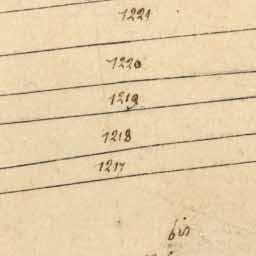 1221
1220
1219
1218
1217